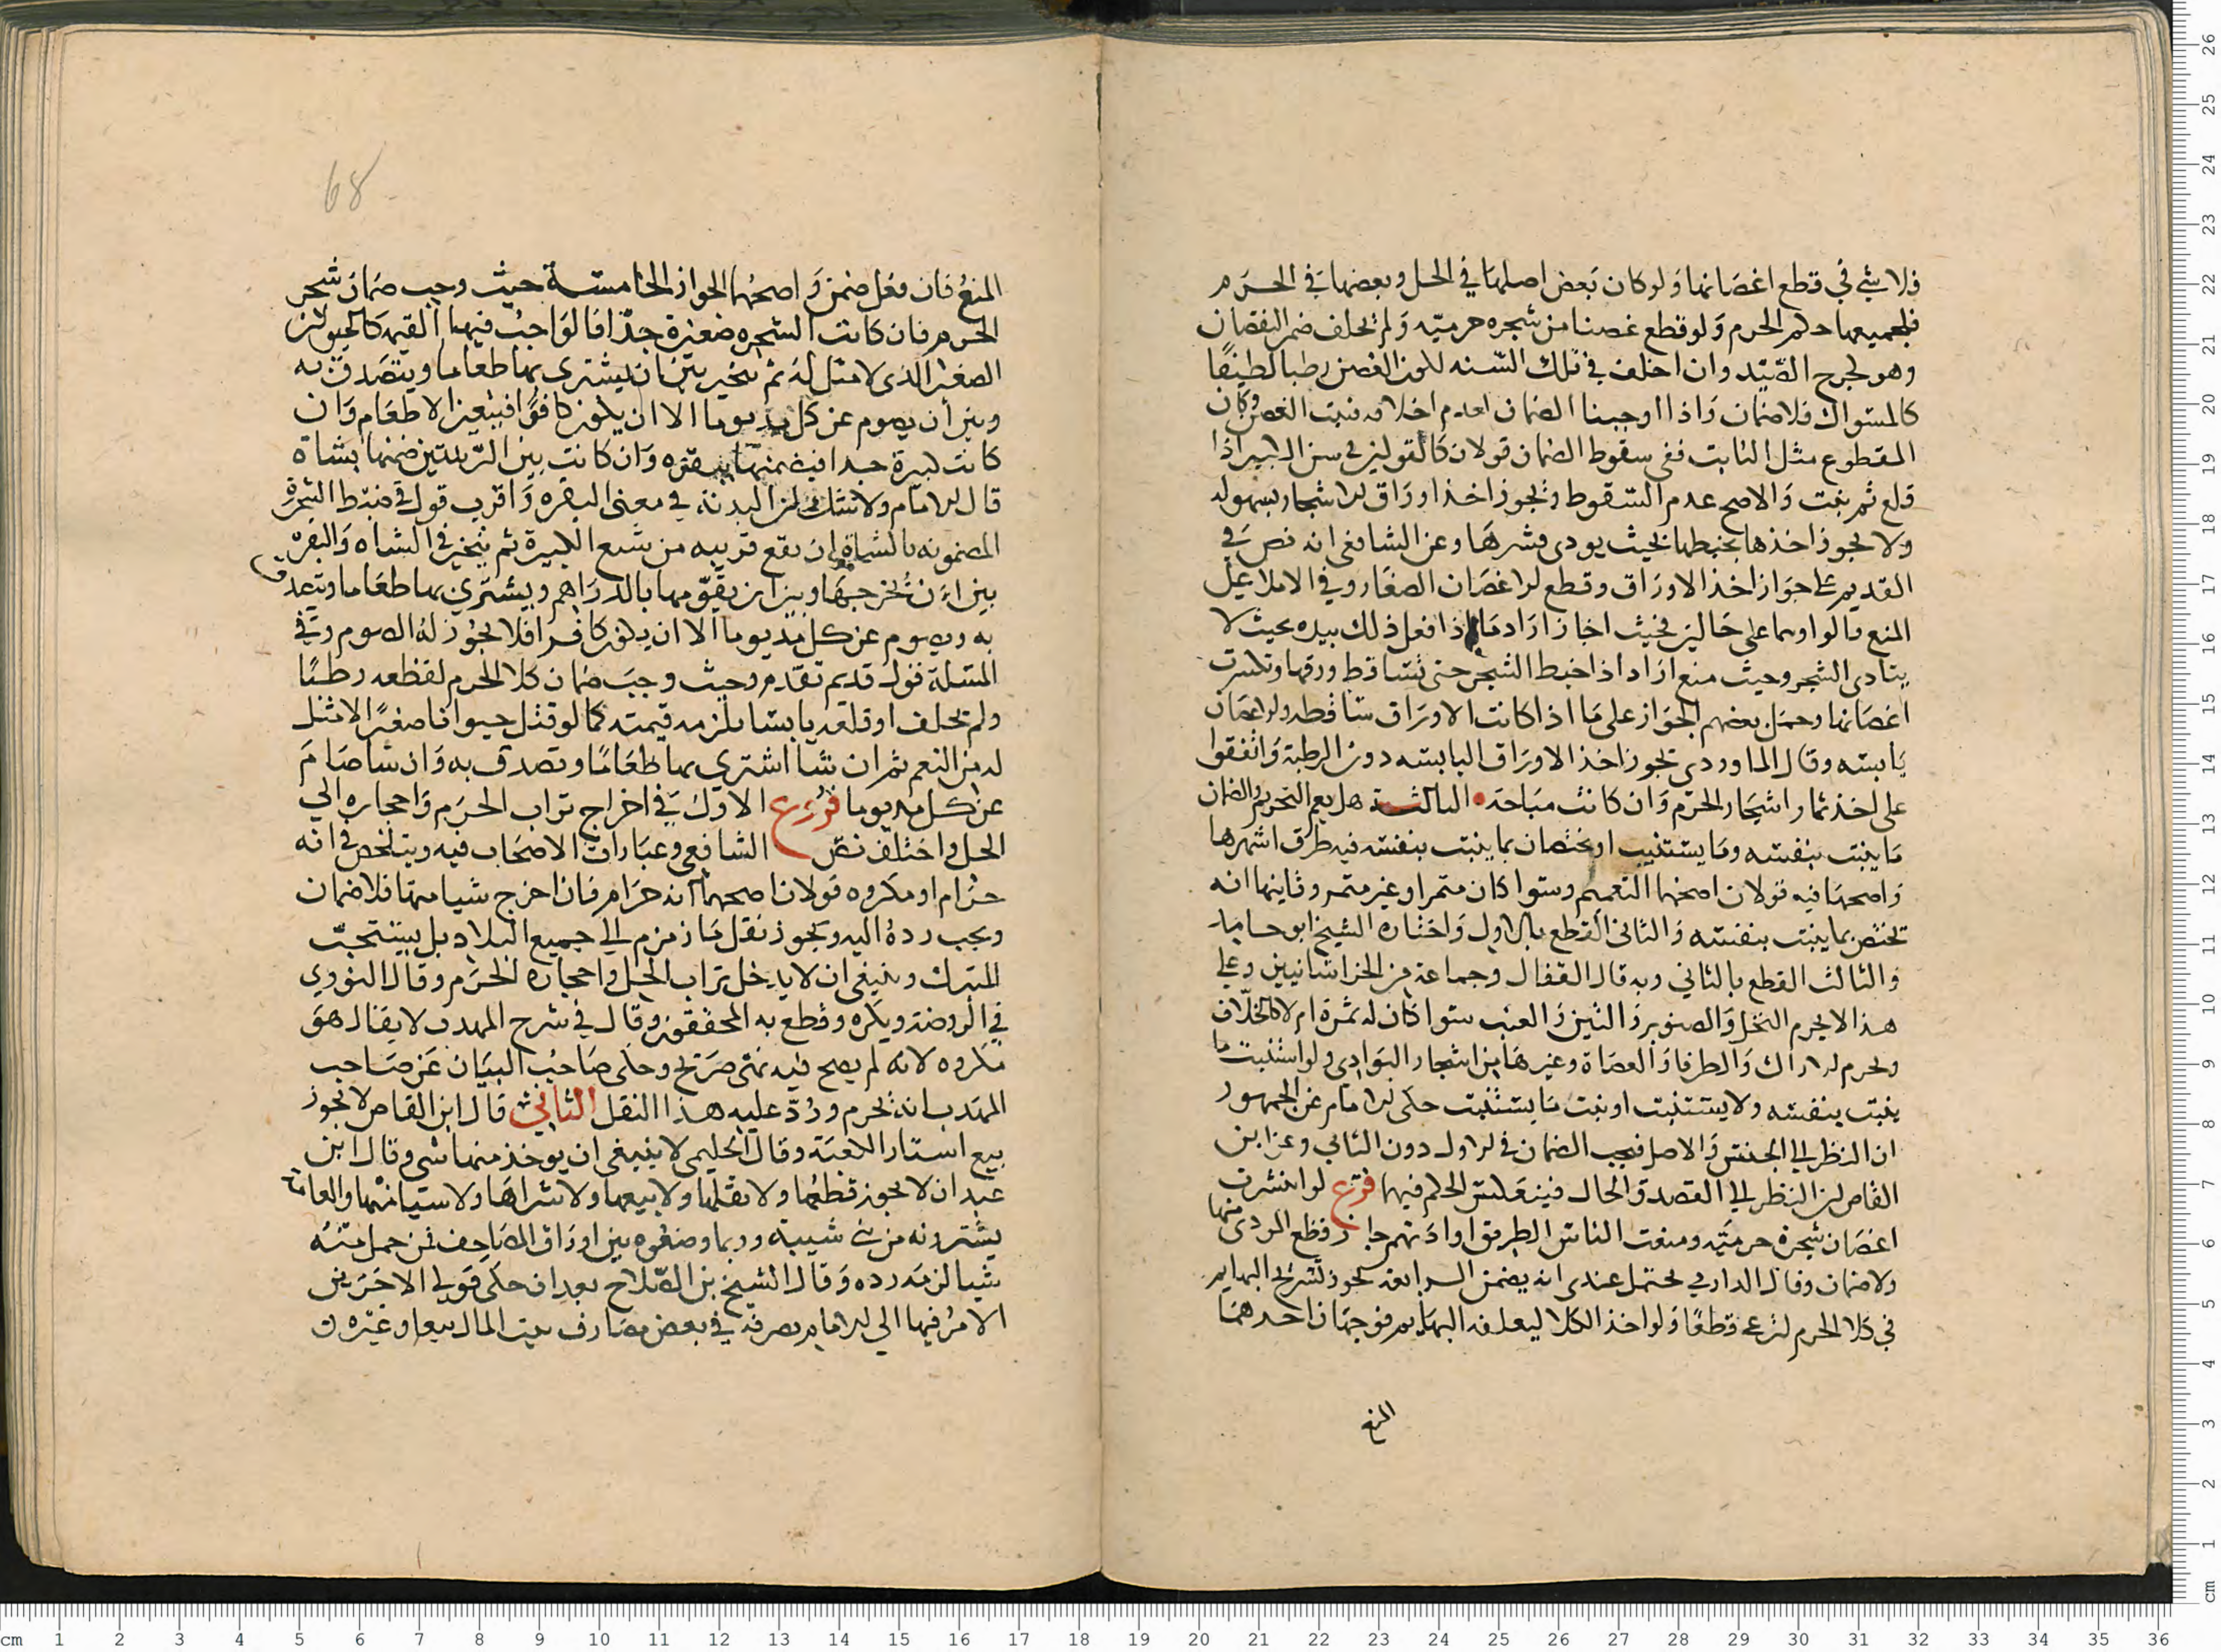 فلا شي في قطع اغصانها ولو كان بعض اصلها في الحل وبعضها في الحرم
فلجميعها حكم الحرم ولو قطع غصنا من شجره حرميه ولم تخلف ضمن النقصان
وهو لجرح الصيد وان اخلف في تلك السنه لكون الغصن رطبا لطيفا
كالسواك فلا ضمان واذا اوجبنا الضمان لعدم اخلافه فنبت الغصن وكان
المقطوع مثل النابت ففي سقوط الضمان قولان كالقولين في سن الكبير اذا
قلع ثم نبت والاصح عدم السقوط وتجوز اخذ اوراق الاشجار بسهوله
ولا يجوز اخذها بخبطها بحيث يودي قشرها وعن الشافعي انه نص في
القديم على جواز اخذ الاوراق وقطع الاغصان الصغار وفي الاملا على
المنع قالوا وهما على حالين فحيث اجاز اراد ما اذا فعل ذلك بيده بحيث لا
يتادى الشجر وحيث منع اراد اذا خبط الشجر حتى تتساقط ورقها وتكسرت
اغصانها وحمل بعضهم الجواز على ما اذا كانت الاوراق ساقطه والاغصان
يابسه وقال الماوردي تجوز اخذ الاوراق اليابسه دون الرطبة واتفقوا
على اخذ ثمار اشجار الحرم وان كانت مباحة الثالثة هل يعم التحريم والضمان
ما ينبت بنفسه وما يستنبت او يختصان بما ينبت بنفسه فيه طرق اشهرها
واصحها فيه قولان اصحهما التعميم وسوا كان مثمرا وغير مثمر وثانيهما انه
تختص بما ينبت بنفسه والثاني القطع بالاول واختاره الشيخ ابو حامد
والثالث القطع بالثاني وبه قال القفال وجماعة من الخراسانيين وعلى
هذا لا يحرم النخل والصنوبر والتين والعنب سوا كان له ثمرة ام لا كالخلاف
ويحرم الاراك والطرفا والعضاة وغيرها من اشجار البوادي ولو استنبت ما
ينبت بنفسه ولا يستنبت او نبت ما يستنبت حكى الامام عن الجمهور
ان النظر الى الجنس والاصل فيجب الضمان في الاول دون الثاني وعن ابن
القاص ان النظر الى القصد والحال فينعكس الحكم فيهما فرع لو انتشرت
اغصان شجرة حرميه ومنعت الناس الطريق او اذتهم جاز قطع الموذي منها
ولا ضمان وقال الدارمي يحتمل عندي انه يضمن الرابعة يجوز تسريح البهايم
في كلا الحرم لترعى قطعا ولو اخذ الكلا ليعلفه البهايم فوجهان احدهما
المنع
68
المنع فان فعل ضمن واصحهما الجواز الخامسة حيث وجب ضمان شجر
الحرم فان كانت الشجره صغيرة جدا فالواجب فيها القيمه كالحيوان
الصغير الذي لا مثل له ثم يتخير بين ان يشتري بها طعاما ويتصدق به
وبين أن يصوم عن كل مد يوما الا ان يكون كافرا فيتعين الاطعام وان
كانت كبيرة جدا فيضمنها ببقره وان كانت بين الرتبتين ضمنها بشاة
قال الامام ولا شك ان البدنة في معنى البقره واقرب قول في ضبط الشجرة
المضمونه بالشاة ان تقع قريبه من سبع الكبيرة ثم يتخير في الشاه والبقره
بين ان تخرجها وبين ان يقومها بالدراهم ويشتري بها طعاما ويتصدق
به ويصوم عن كل مد يوما الا ان يكون كافرا فلا يجوز له الصوم وفي
المسلة قول قديم تقدم وحيث وجب ضمان كلا الحرم لقطعه رطبا
ولم تخلف او قلعه يابسا يلزمه قيمته كما لو قتل حيوانا صغيرا لا مثل
له من النعم ثم ان شا اشتري بها طعاما وتصدق به وان شا صام
عن كل مد يوما فروع الاول في اخراج تراب الحرم واحجاره الى
الحل واختلف نص الشافعي وعبارات الاصحاب فيه ويتلخص في انه
حرام او مكروه قولان اصحهما انه حرام فان اخرج شيا منها فلا ضمان
ويجب رده اليه ويجوز نقل ما زمزم الى جميع البلاد بل يستحب
للتبرك وينبغي ان لا يدخل تراب الحل واحجاره الحرم وقال النووي
في الروضة ويكره وقطع به المحققون وقال في شرح المهذب لا يقال هو
مكروه لانه لم يصح فيه نهي صريح وحكى صاحب البيان عن صاحب
المهذب انه يحرم ورد عليه هذا النقل الثاني قال ابن القاص لا تجوز
بيع استار الكعبة وقال الحليمي لا ينبغي ان يوخذ منها شي وقال ابن
عبدان لا يجوز قطعها ولا نقلها ولا بيعها ولا شراها ولا سيما منها والعامة
يشترونه من بني شيبة وربما وضعوه بين اوراق المصاحف فمن حمل منه
شيا لزمه رده وقال الشيخ بن الصلاح بعد ان حكى قولي الاخرين
الامر فيها الى الامام يصرفه في بعض مصارف بيت المال بيعا وغيره و